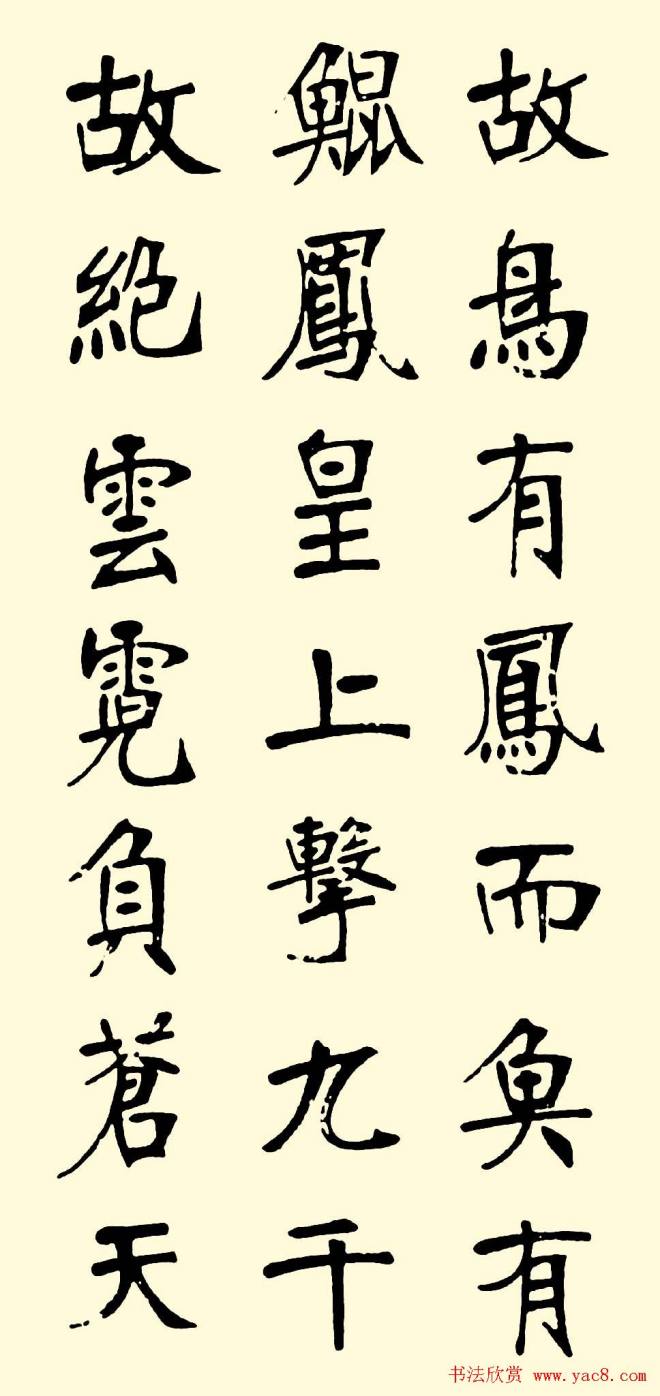 故鳥有鳳而魚有
鯤鳳皇上擊九千
故絶雲霓負蒼天
书法欣赏 www.yac8.com